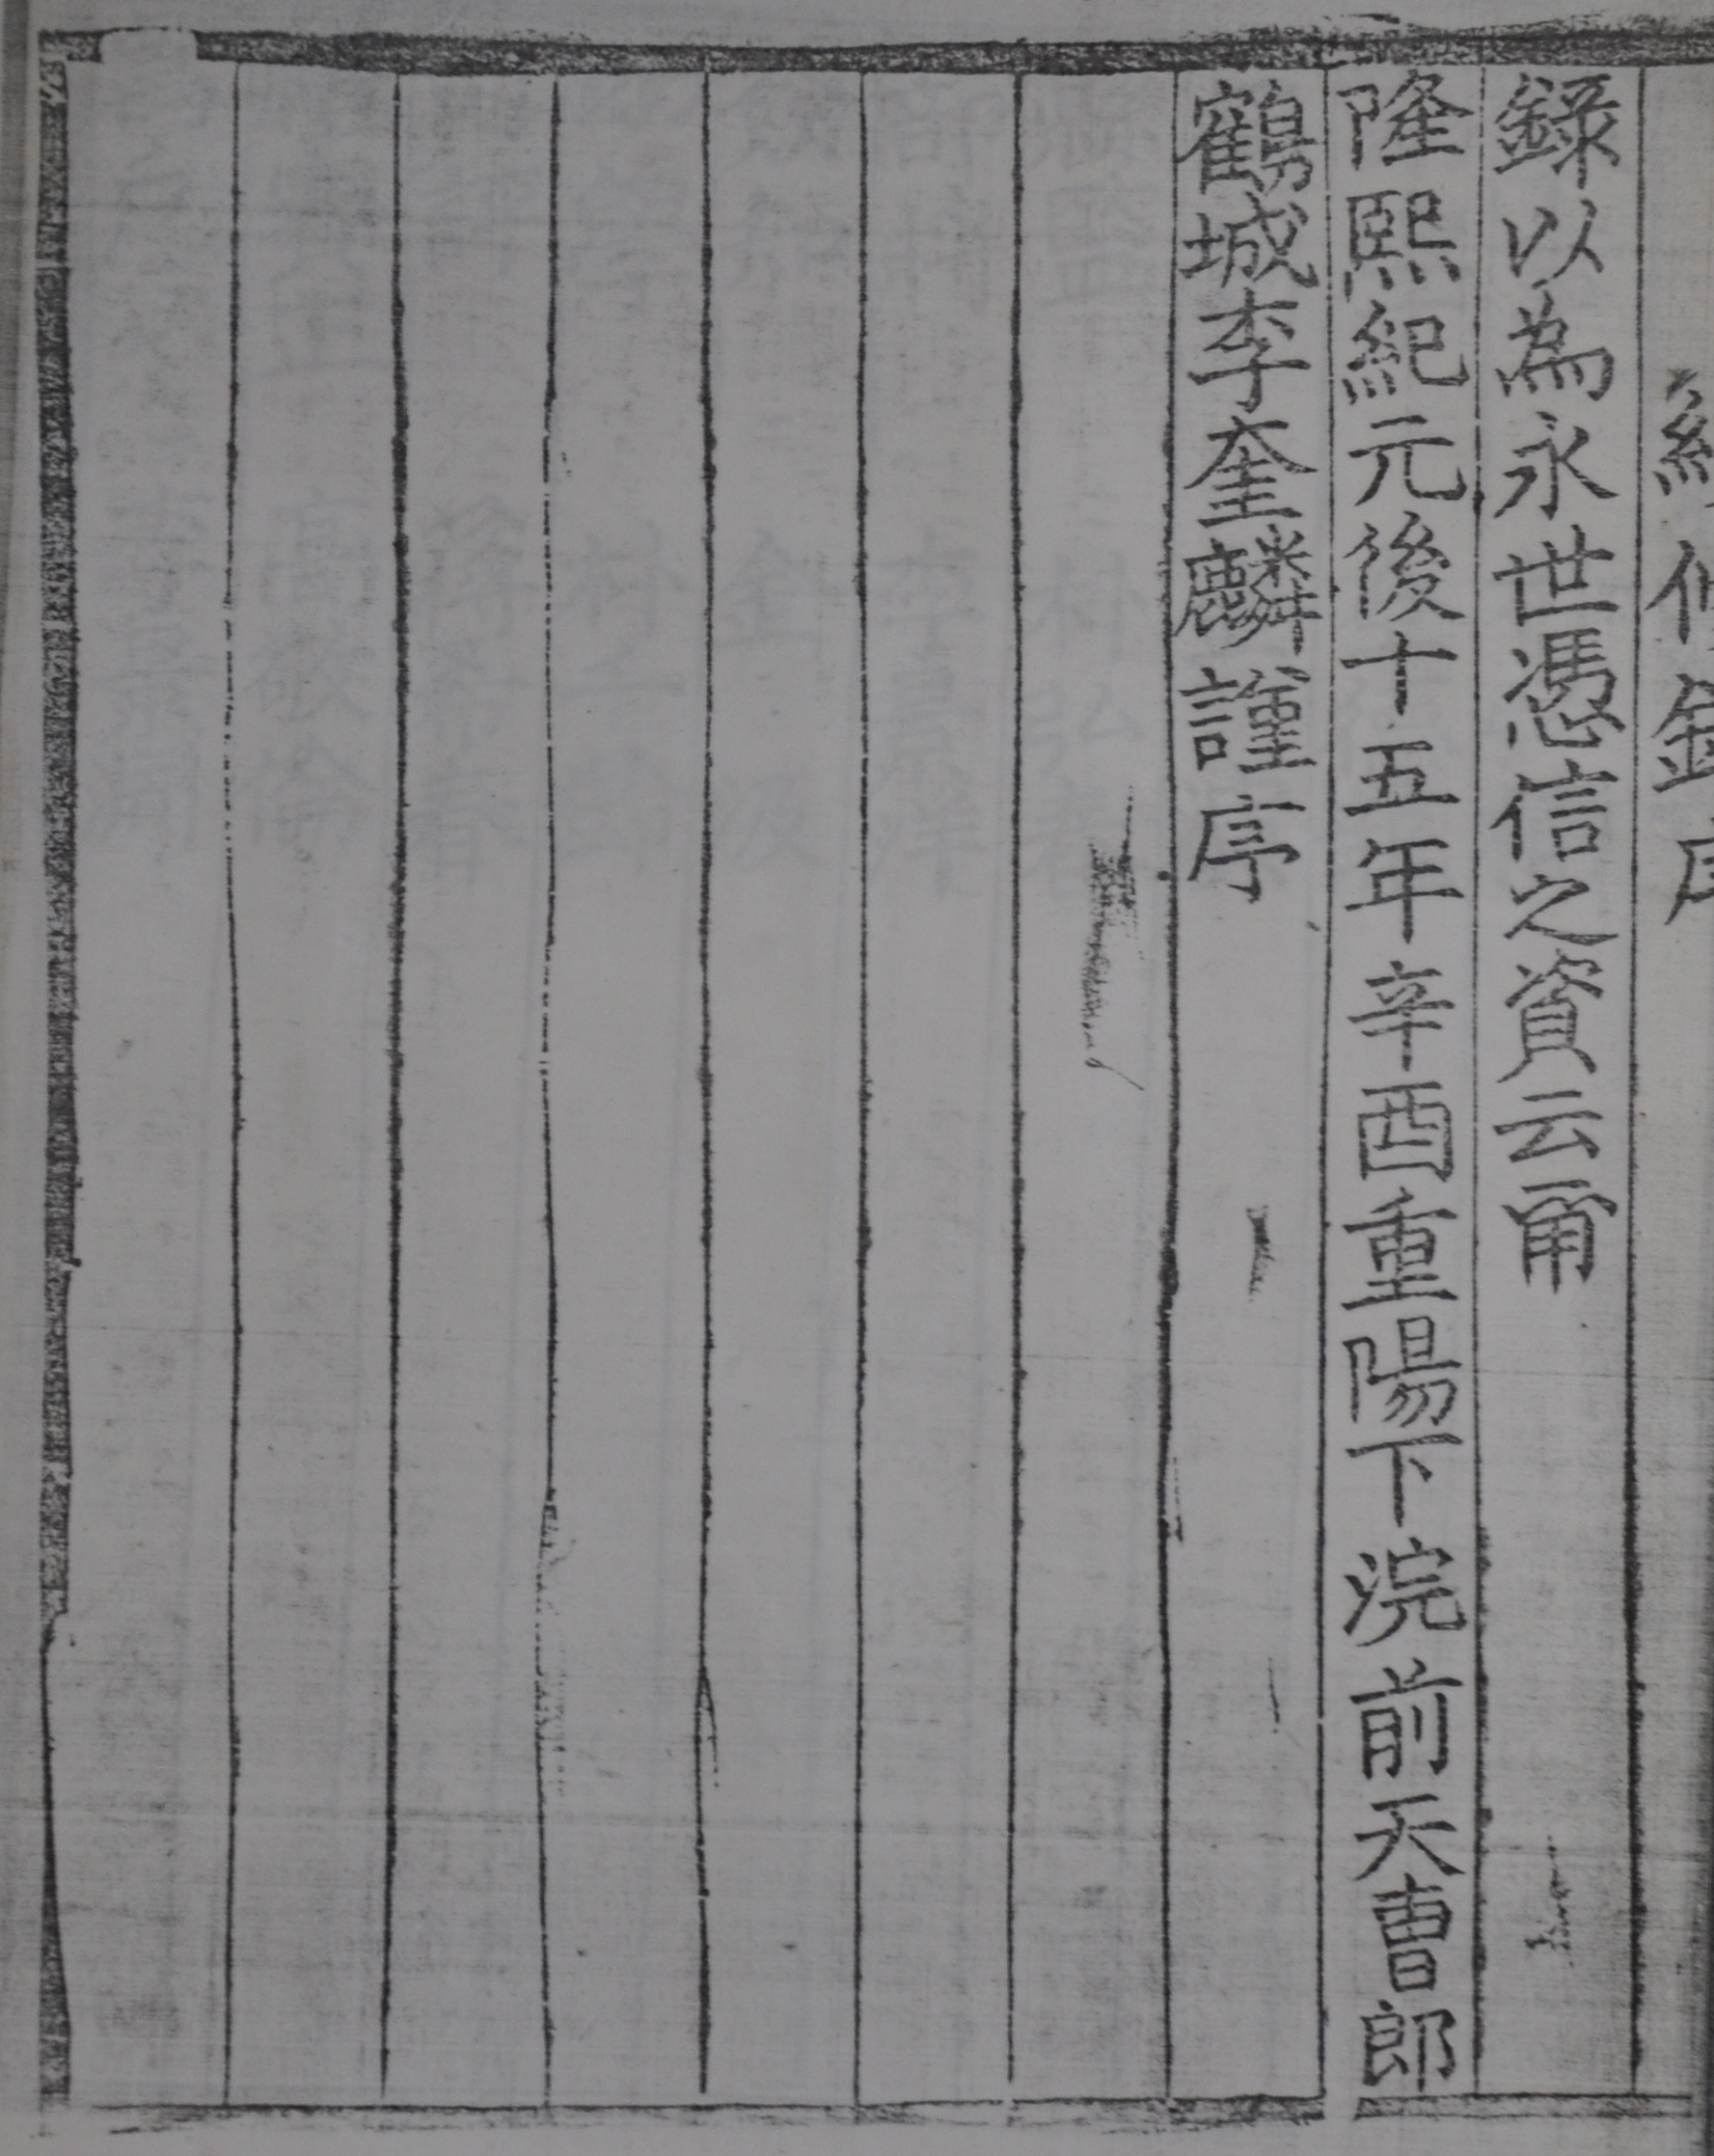 錄以爲永世憑信之資云甭
隆熙紀元後十五年辛酉重陽下浣前天曹郎
鶴城李奎麟謹序